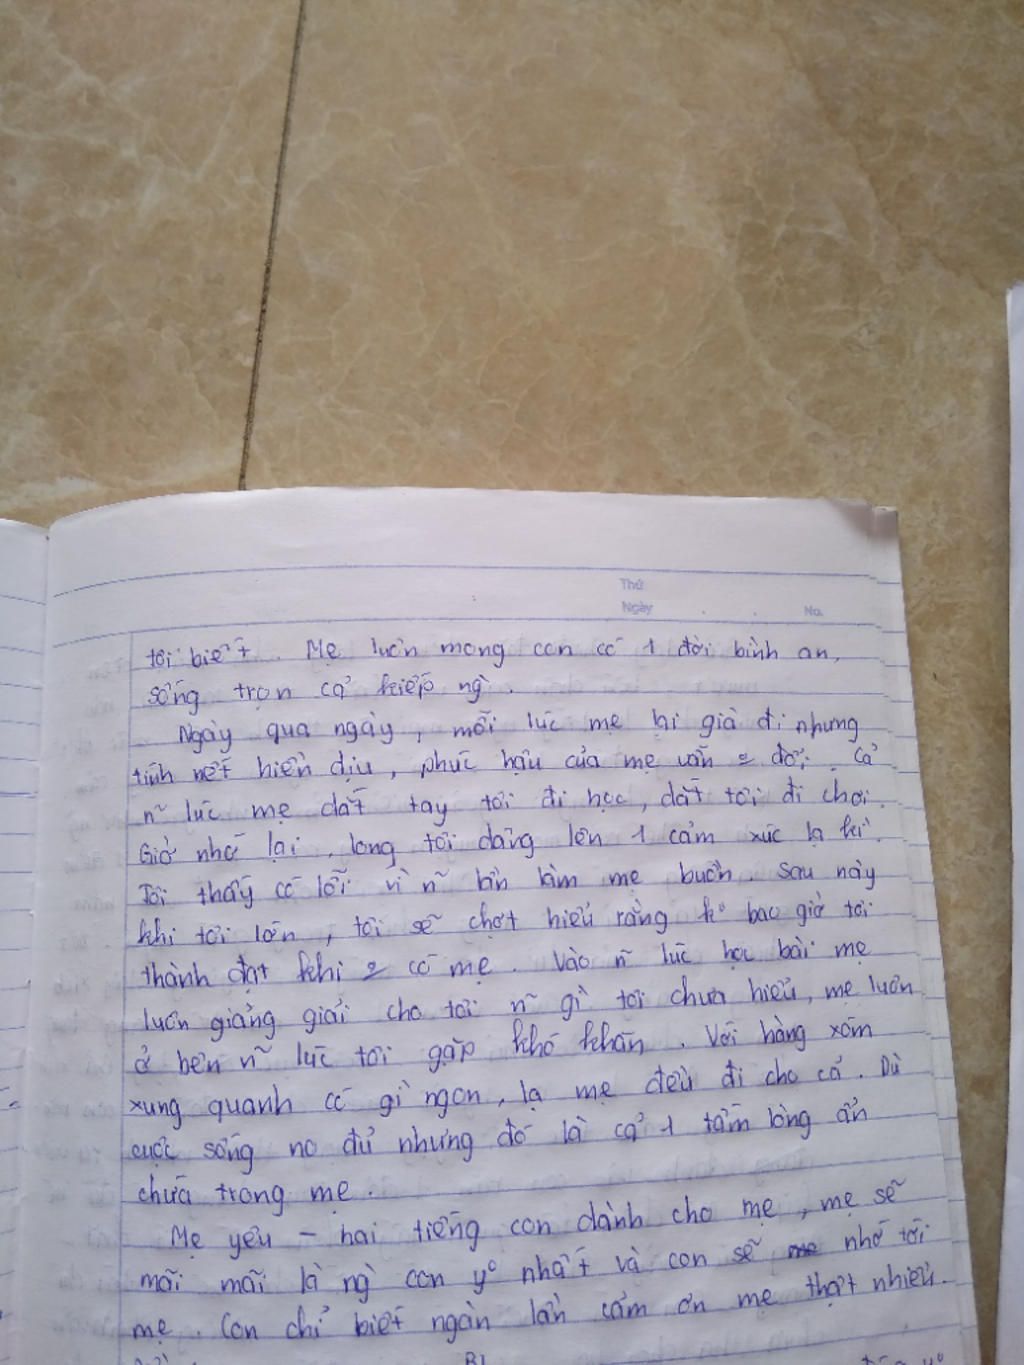 Thứ
Ngày . . No.
tôi biết. Mẹ luôn mong con có 1 đời bình an,
sống trọn cả kiếp ng̀.
Ngày qua ngày, mỗi lúc mẹ lại già đi nhưng
tính nết hiền dịu, phúc hậu của mẹ vẫn 2 đổi. Cả
n~ lúc mẹ dắt tay tôi đi học, dắt tôi đi chơi.
Giờ nhớ lại, lòng tôi dâng lên 1 cảm xúc lạ kì.
Tôi thấy có lỗi vì n~ lần làm mẹ buồn. Sau này
khi tôi lớn, tôi sẽ chợt hiểu rằng k° bao giờ tôi
thành đạt khi 2 có mẹ. Vào n~ lúc học bài mẹ
luôn giảng giải cho tôi n~ gì tôi chưa hiểu, mẹ luôn
ở bên n~ lúc tôi gặp khó khăn. Với hàng xóm
xung quanh có gì ngon, lạ mẹ đều đi cho cả. Dù
cuộc sống no đủ nhưng đó là cả 1 tấm lòng ẩn
chứa trong mẹ.
Mẹ yêu - hai tiếng con dành cho mẹ, mẹ sẽ
mãi mãi là ng̀ con y° nhất và con sẽ nhớ tới
mẹ. Con chỉ biết ngàn lần cảm ơn mẹ thật nhiều.